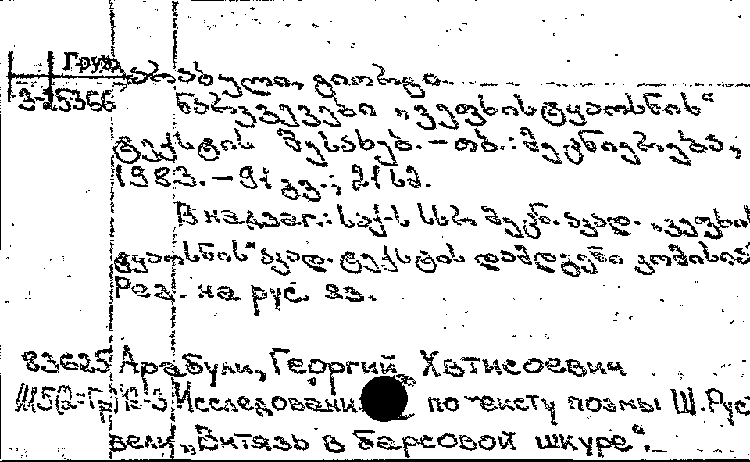 Груз
არაბული, გიორგი.
3-25366 ნარკვევები „ვეფხისტყაოსნის“
ტექსტის შესახებ. – თბ.: მეცნიერება,
1983. – 91 გვ.; 21 სმ.
В надзаг.: საქ-ს სსრ მეცნ. აკად. „ვეფხის
ტყაოსნის“ აკად. ტექსტის დამდგენი კომისია
Рез. на рус. яз.
83625 Арабули, Георгий Хатисоевич
Исследовани по тексту поэмы Ш. Рус
вели „Витязь в барсовой шкуре“.